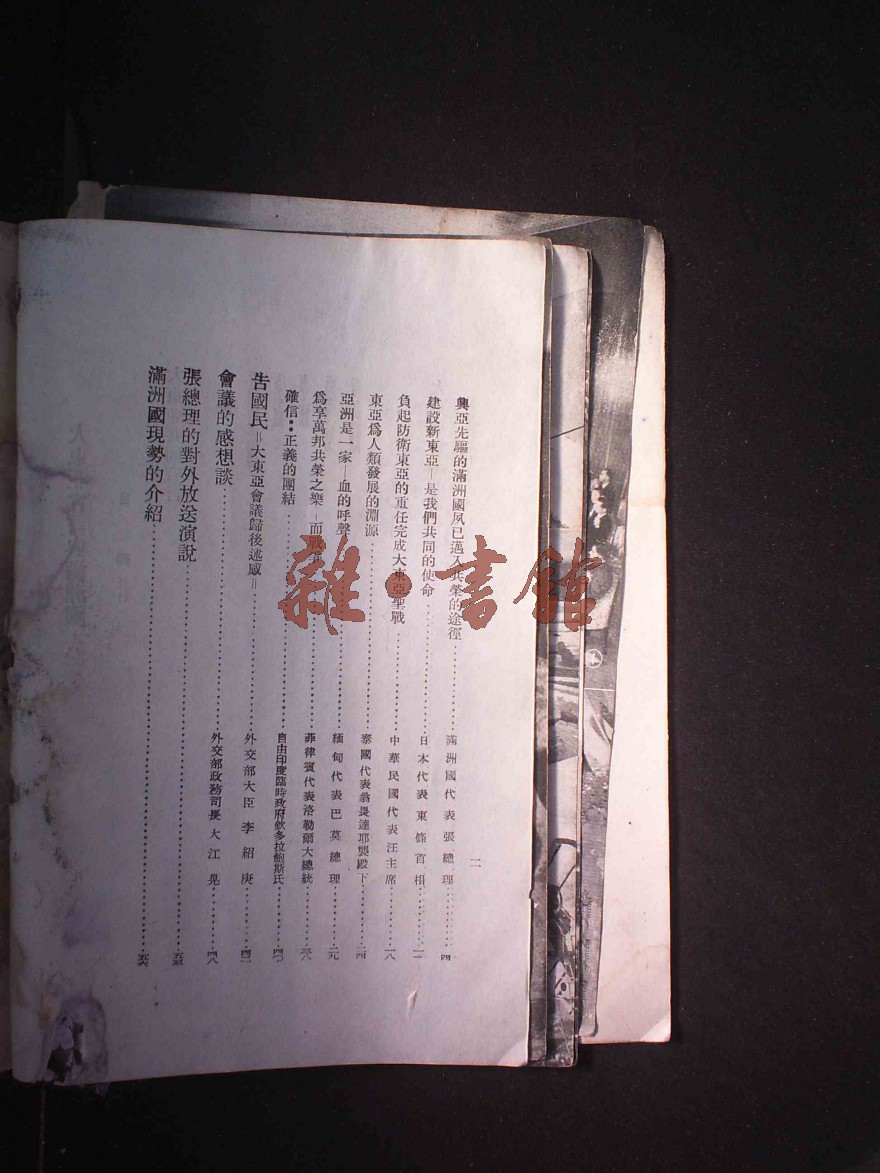 二
興亞先驅的滿洲國夙已邁入共榮的途徑……滿洲國代表張總理……四
建設新東亞—是我們共同的使命……日本代表東條首相……一二
負起防衛東亞的重任完成大東亞聖戰……中華民國代表汪主席……一八
東亞爲人類發展的淵源……泰國代表翁畏達耶瓞殿下……二四
亞洲是一家—血的呼聲……緬甸代表巴莫總理……元
爲享萬邦共榮之樂—而戰爭……菲律賓代表洛勒爾大總統……三八
確信：正義的團結……自由印度臨時政府欽多拉鮑斯氏……四〇
告國民=大東亞會議歸後述感=……外交部大臣李紹庚……四二
會議的感想談……外交部政務司長大江晃……四八
張總理的對外放送演說……五三
滿洲國現勢的介紹……五六
雜·書館